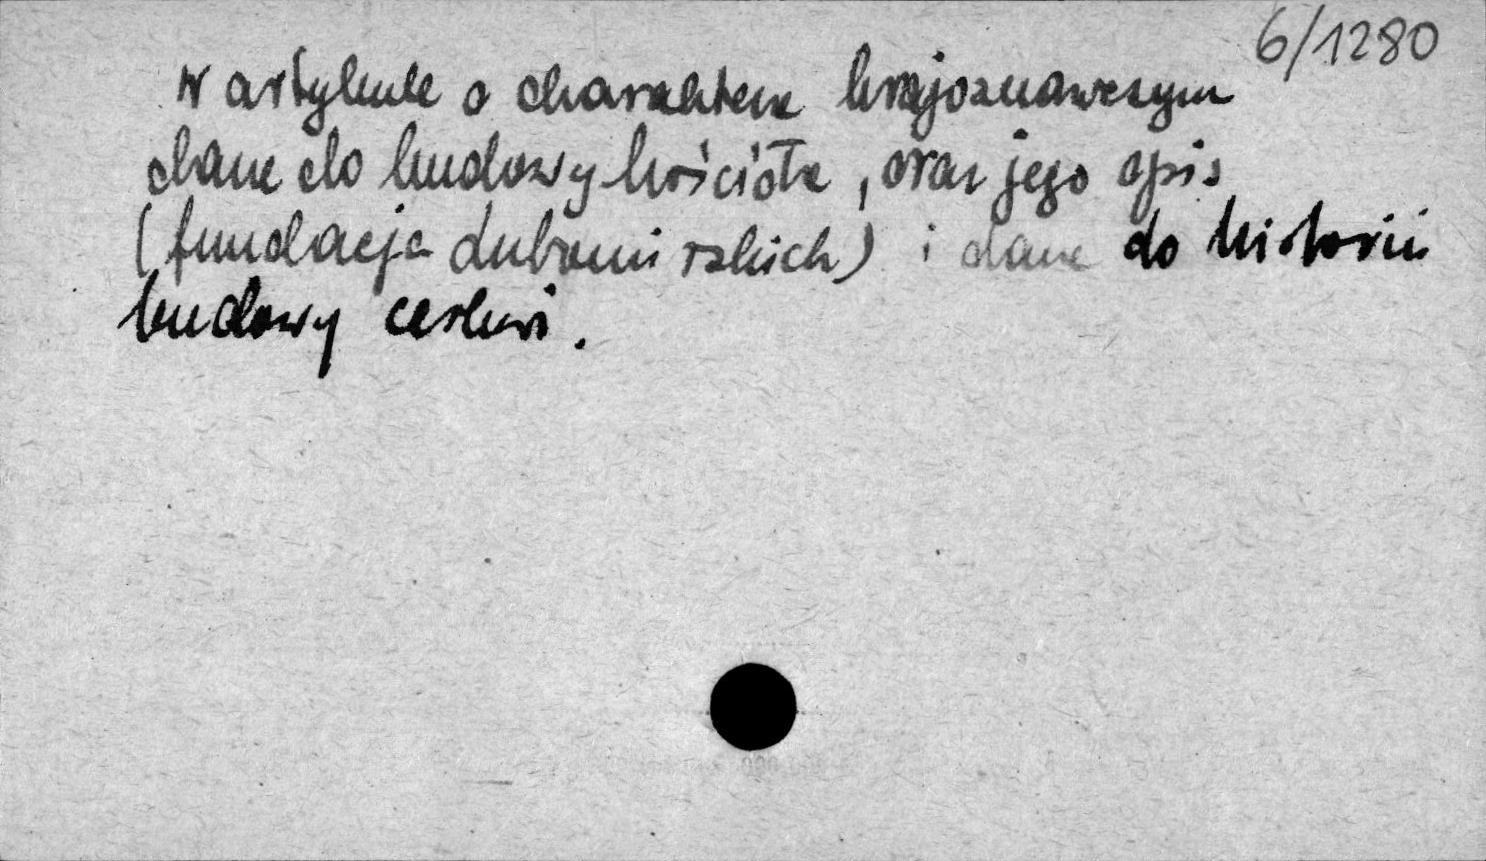 6/1280
w artykule o charakterze krajoznawczym
dane do budowy kościoła, oraz jego opis
(fundacja Lubomirskich) i dane do historii
budowy cerkwi.